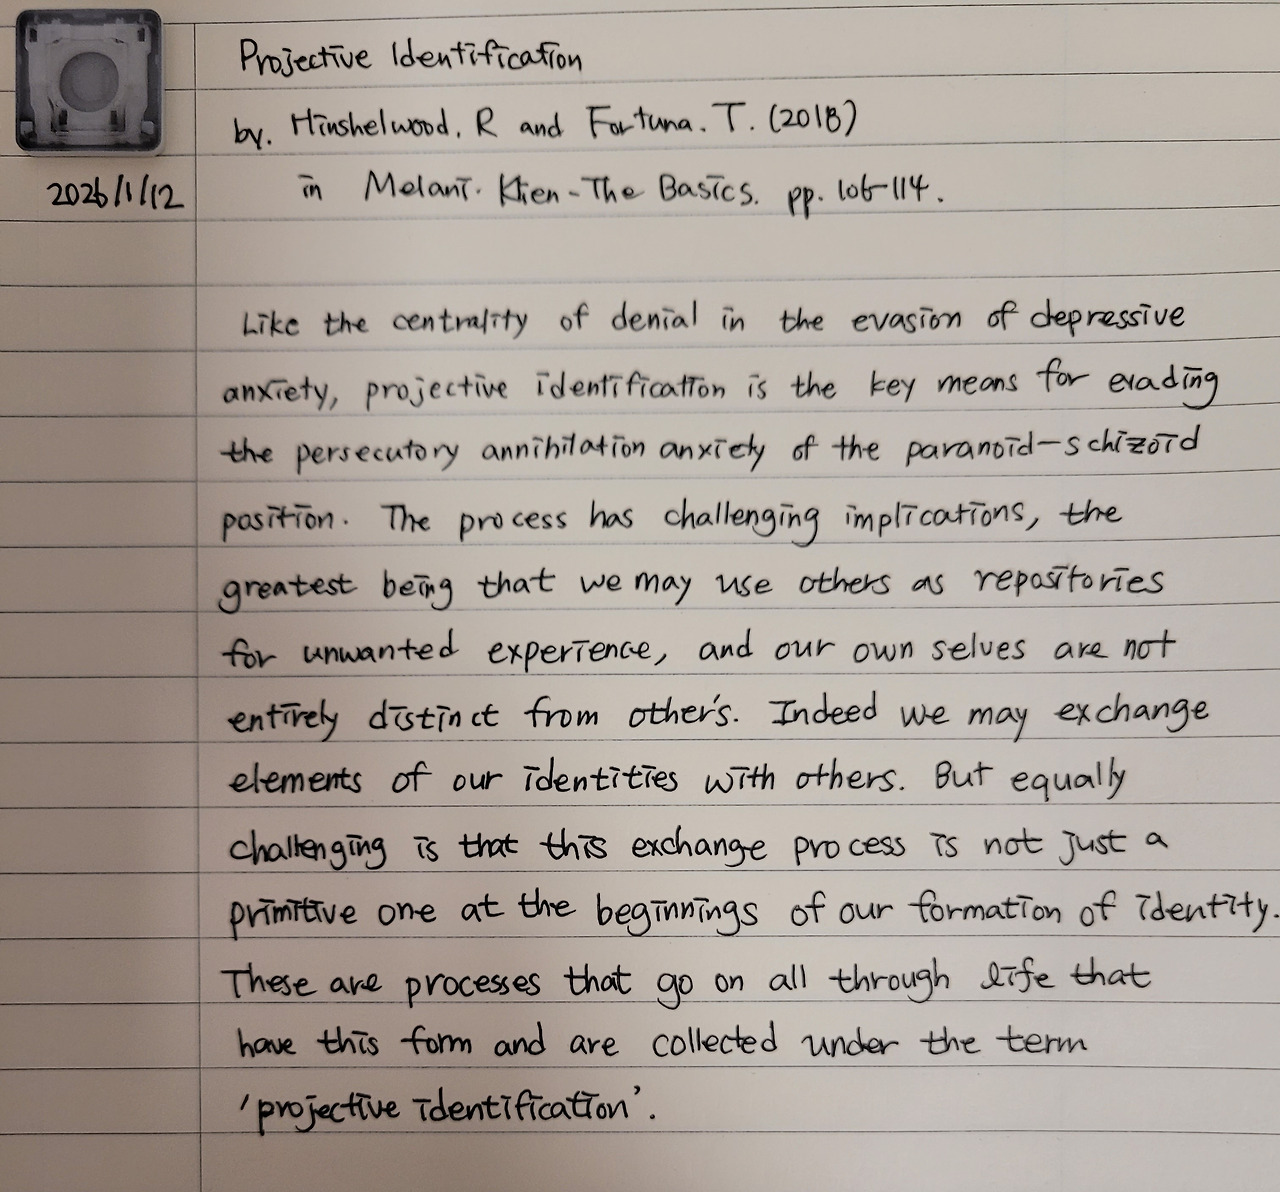 Projective Identification
by. Hinshelwood, R and Fortuna. T. (2018)
2026/1/12
in Melani. Klien - The Basics. pp. 106-114.
Like the centrality of denial in the evasion of depressive
anxiety, projective identification is the key means for evading
the persecutory annihilation anxiety of the paranoid-schizoid
position. The process has challenging implications, the
greatest being that we may use others as repositories
for unwanted experience, and our own selves are not
entirely distinct from other's. Indeed we may exchange
elements of our identities with others. But equally
challenging is that this exchange process is not just a
primitive one at the beginnings of our formation of identity.
These are processes that go on all through life that
have this form and are collected under the term
'projective identification'.